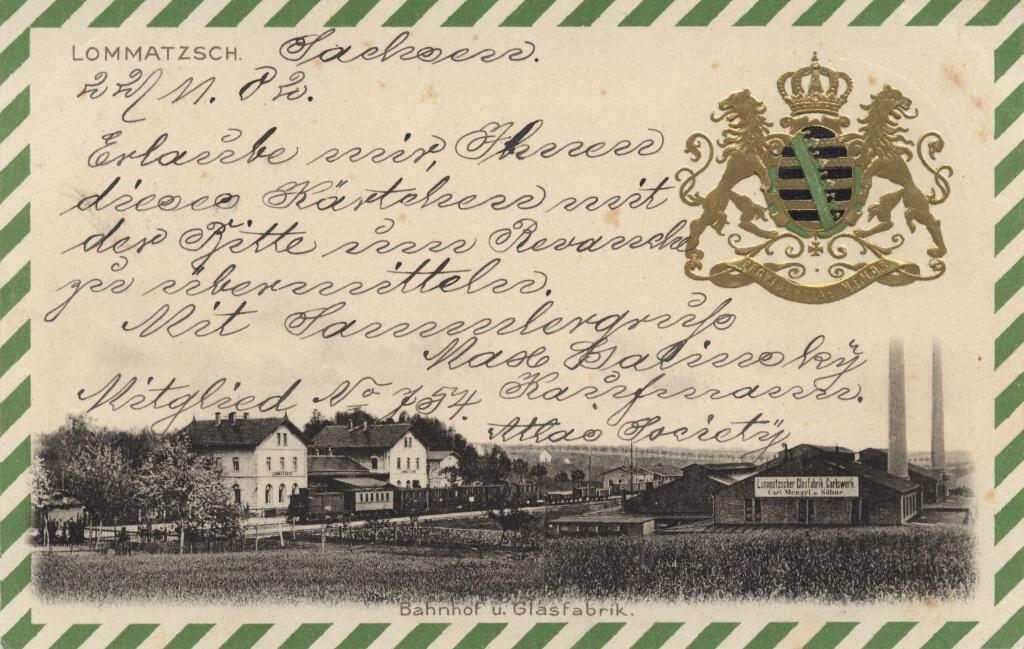 LOMMATZSCH. Sachsen.
22/11. 02.
Erlaube mir, Ihnen
dieses Kärtchen mit
der Bitte um Revanche
zu übermitteln.
Mit Sammlergruß
Max
Mitglied No 754. Kaufmann.
Atlas Society
Lommatzscher Glasfabrik Carlswerk
Carl Menzel u. Söhne
Bahnhof u. Glasfabrik.